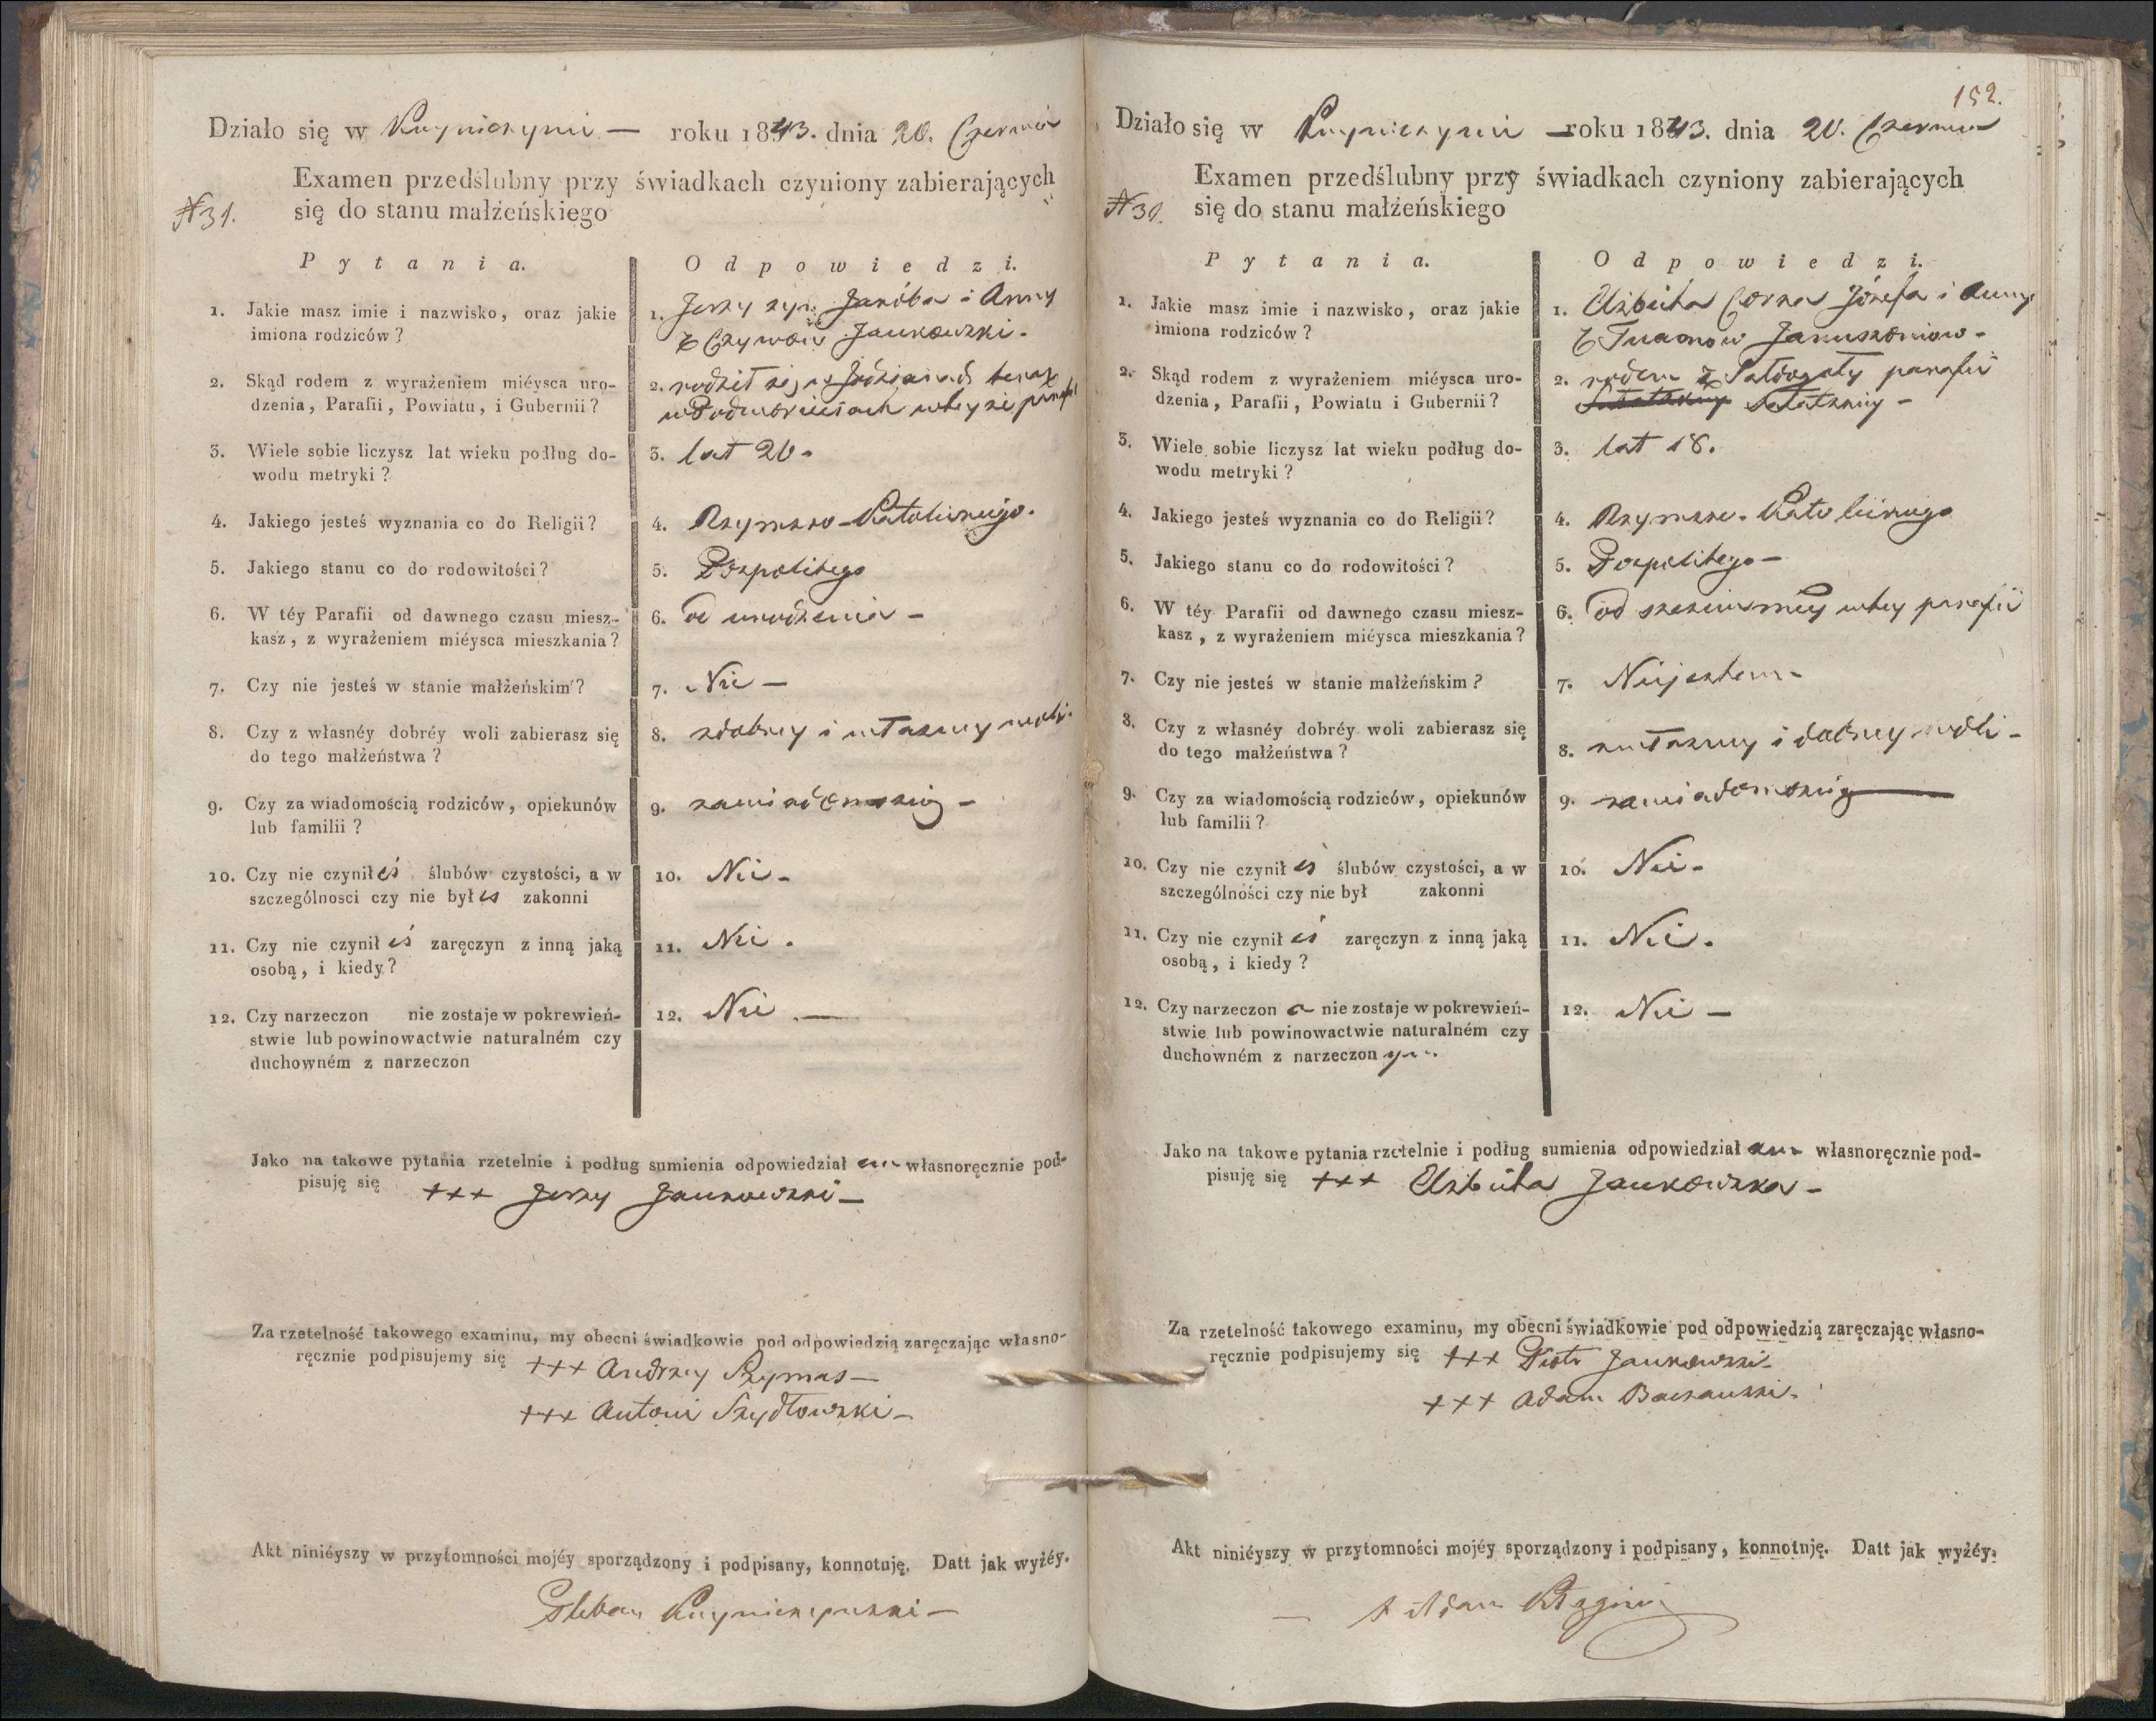 Działo się w Kuyniczynie — roku 1843. dnia 20. Czerwca
Examen przedślubny przy świadkach czyniony zabierających
się do stanu małżeńskiego
N31.
P y t a n i a.
O d p o w i e d z i.
1. Jakie masz imie i nazwisko, oraz jakie
imiona rodziców?
1. Jerzy syn Jakóba i Anny
z Jankowski.
2. Skąd rodem z wyrażeniem miéysca uro-
dzenia, Parafii, Powiatu, i Gubernii?
2. rodził się teraz
w wtey że parafii
3. Wiele sobie liczysz lat wieku podług do-
wodu metryki?
3. lat 20.
4. Jakiego jesteś wyznania co do Religii?
4. Rzymsko-Katolickiego.
5. Jakiego stanu co do rodowitości?
5. Pospolitego
6. W téy Parafii od dawnego czasu miesz-
kasz, z wyrażeniem miéysca mieszkania?
6. od urodzenia —
7. Czy nie jesteś w stanie małżeńskim?
7. Nie —
8. Czy z własnéy dobréy woli zabierasz się
do tego małżeństwa?
8. zdobrey i własney woli.
9. Czy za wiadomością rodziców, opiekunów
lub familii?
9. zawiadomością —
10. Czy nie czynił eś ślubów czystości, a w
szczególnosci czy nie był eś zakonni
10. Nie —
11. Czy nie czynił eś zaręczyn z inną jaką
osobą, i kiedy?
11. Nie.
12. Czy narzeczon nie zostaje w pokrewień-
stwie lub powinowactwie naturalném czy
duchowném z narzeczon
12. Nie —
Jako na takowe pytania rzetelnie i podług sumienia odpowiedział em własnoręcznie pod-
pisuję się +++ Jerzy Jankowski —
Za rzetelność takowego examinu, my obecni świadkowie pod odpowiedzią zaręczając własno-
ręcznie podpisujemy się +++ Andrzey Szymas —
+++ Antoni Szydłowski —
Akt niniéyszy w przytomności mojéy sporządzony i podpisany, konnotuję. Datt jak wyżéy.
Pleban
152.
Działo się w Kuyniczynie — roku 1843. dnia 20. Czerwca
Examen przedślubny przy świadkach czyniony zabierających
się do stanu małżeńskiego
N31.
P y t a n i a.
O d p o w i e d z i.
1. Jakie masz imie i nazwisko, oraz jakie
imiona rodziców?
1. Elżbieta Corka Józefa i Anny
z
2. Skąd rodem z wyrażeniem miéysca uro-
dzenia, Parafii, Powiatu i Gubernii?
2. rodem z parafii
3. Wiele sobie liczysz lat wieku podług do-
wodu metryki?
3. lat 18.
4. Jakiego jesteś wyznania co do Religii?
4. Rzymsko-Katolickiego
5. Jakiego stanu co do rodowitości?
5. Pospolitego —
6. W téy Parafii od dawnego czasu miesz-
kasz, z wyrażeniem miéysca mieszkania?
6. od wtey parafii
7. Czy nie jesteś w stanie małżeńskim?
7. Niejestem —
8. Czy z własnéy dobréy woli zabierasz się
do tego małżeństwa?
8. zwłasney i dobrey woli —
9. Czy za wiadomością rodziców, opiekunów
lub familii?
9. zawiadomością —
10. Czy nie czynił eś ślubów czystości, a w
szczególności czy nie był zakonni
10. Nie —
11. Czy nie czynił eś zaręczyn z inną jaką
osobą, i kiedy?
11. Nie.
12. Czy narzeczon a nie zostaje w pokrewień-
stwie lub powinowactwie naturalném czy
duchowném z narzeczon ym.
12. Nie —
Jako na takowe pytania rzetelnie i podług sumienia odpowiedział am własnoręcznie pod-
pisuję się +++ Elżbieta Jankowska —
Za rzetelność takowego examinu, my obecni świadkowie pod odpowiedzią zaręczając własno-
ręcznie podpisujemy się +++ Piotr Jankowski —
+++ Adam
Akt niniéyszy w przytomności mojéy sporządzony i podpisany, konnotuję. Datt jak wyżéy.